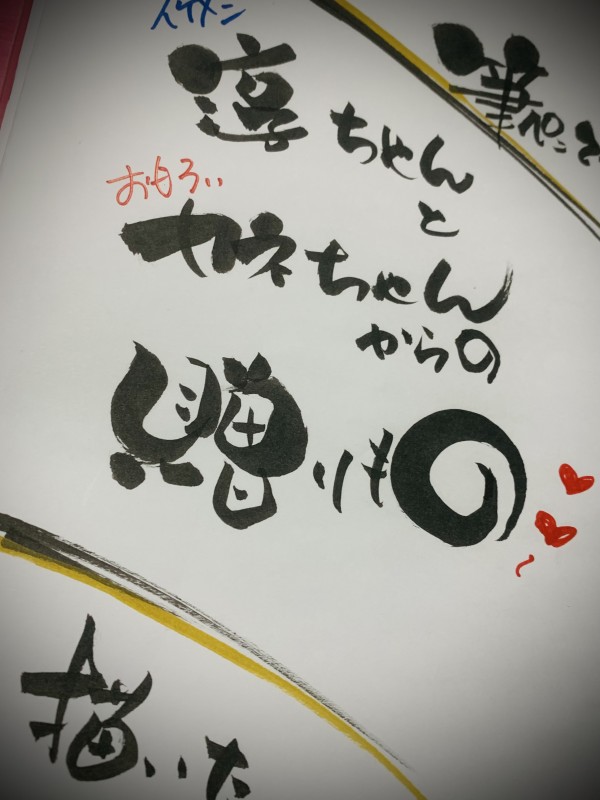 イケメン
淳ちゃん
と
おもろい
カネちゃん
からの
贈りもの
筆ペンで
描いた